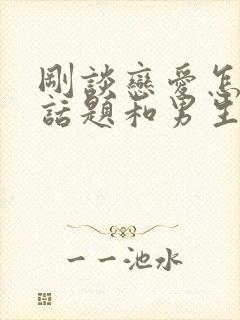 剛談戀愛怎
話題和男生
一一池水